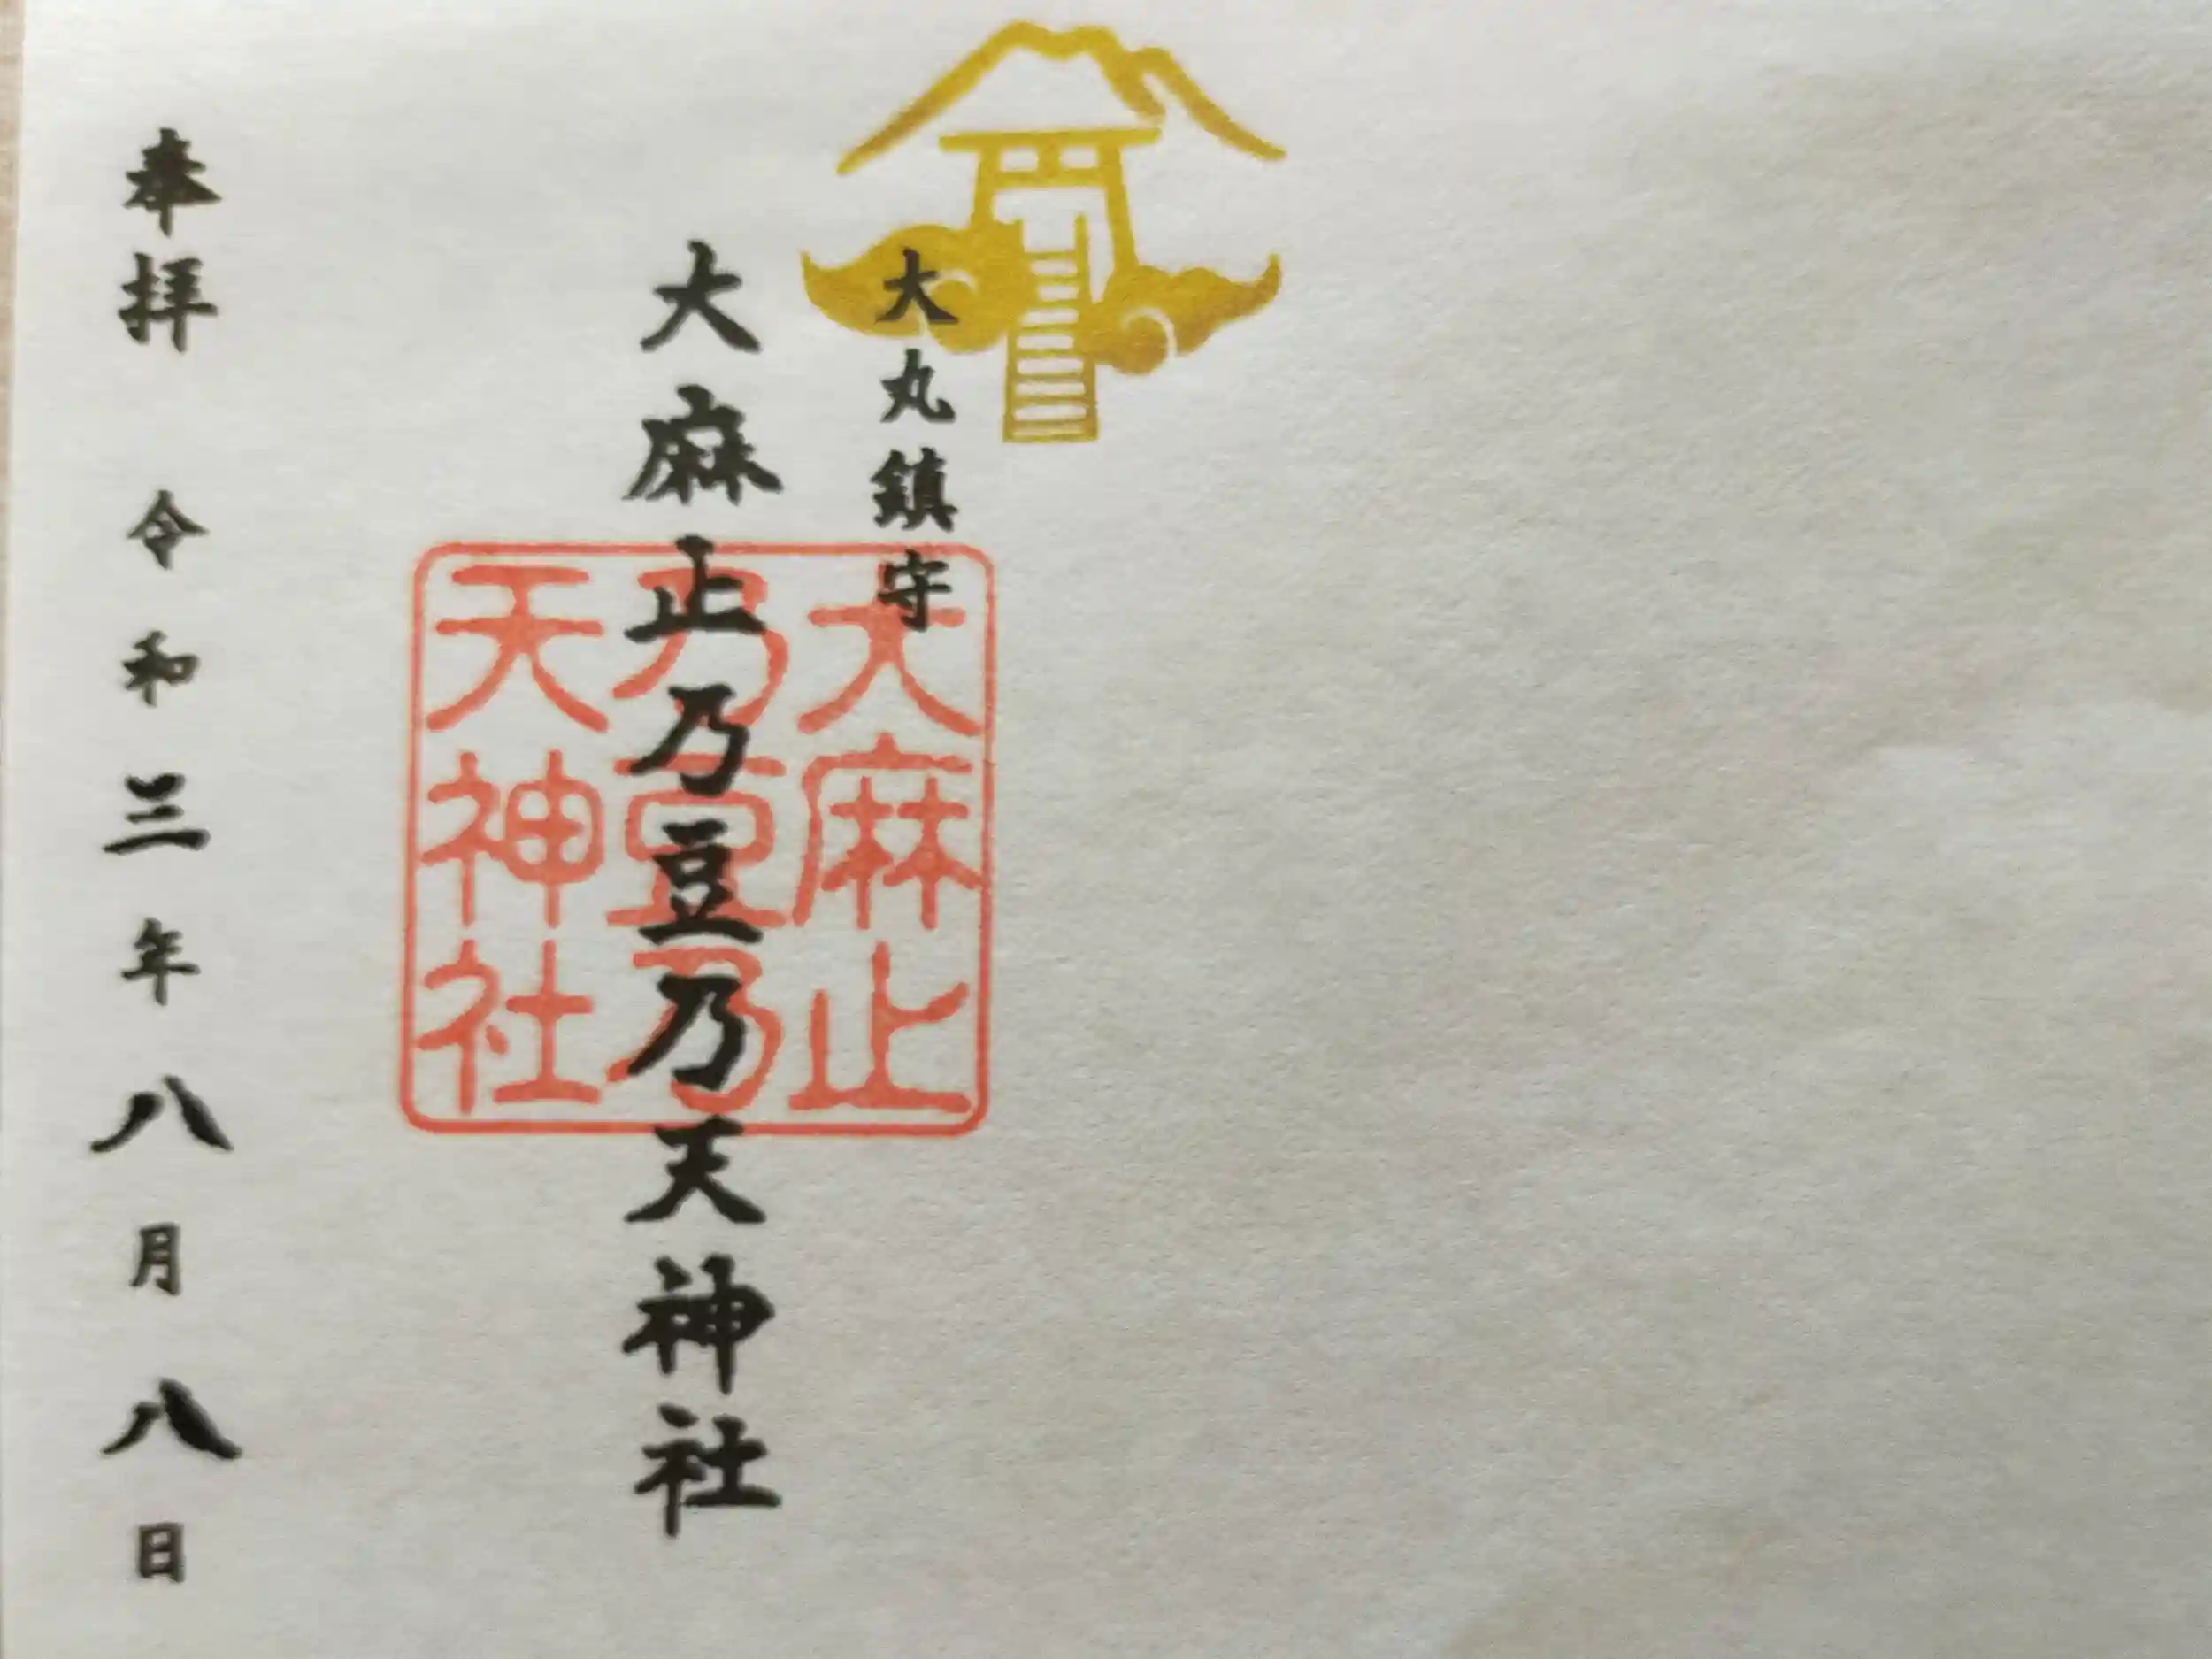 大丸鎮守
大麻止乃豆乃天神社
大麻止
乃豆乃
天神社
奉拝 令和三年八月八日